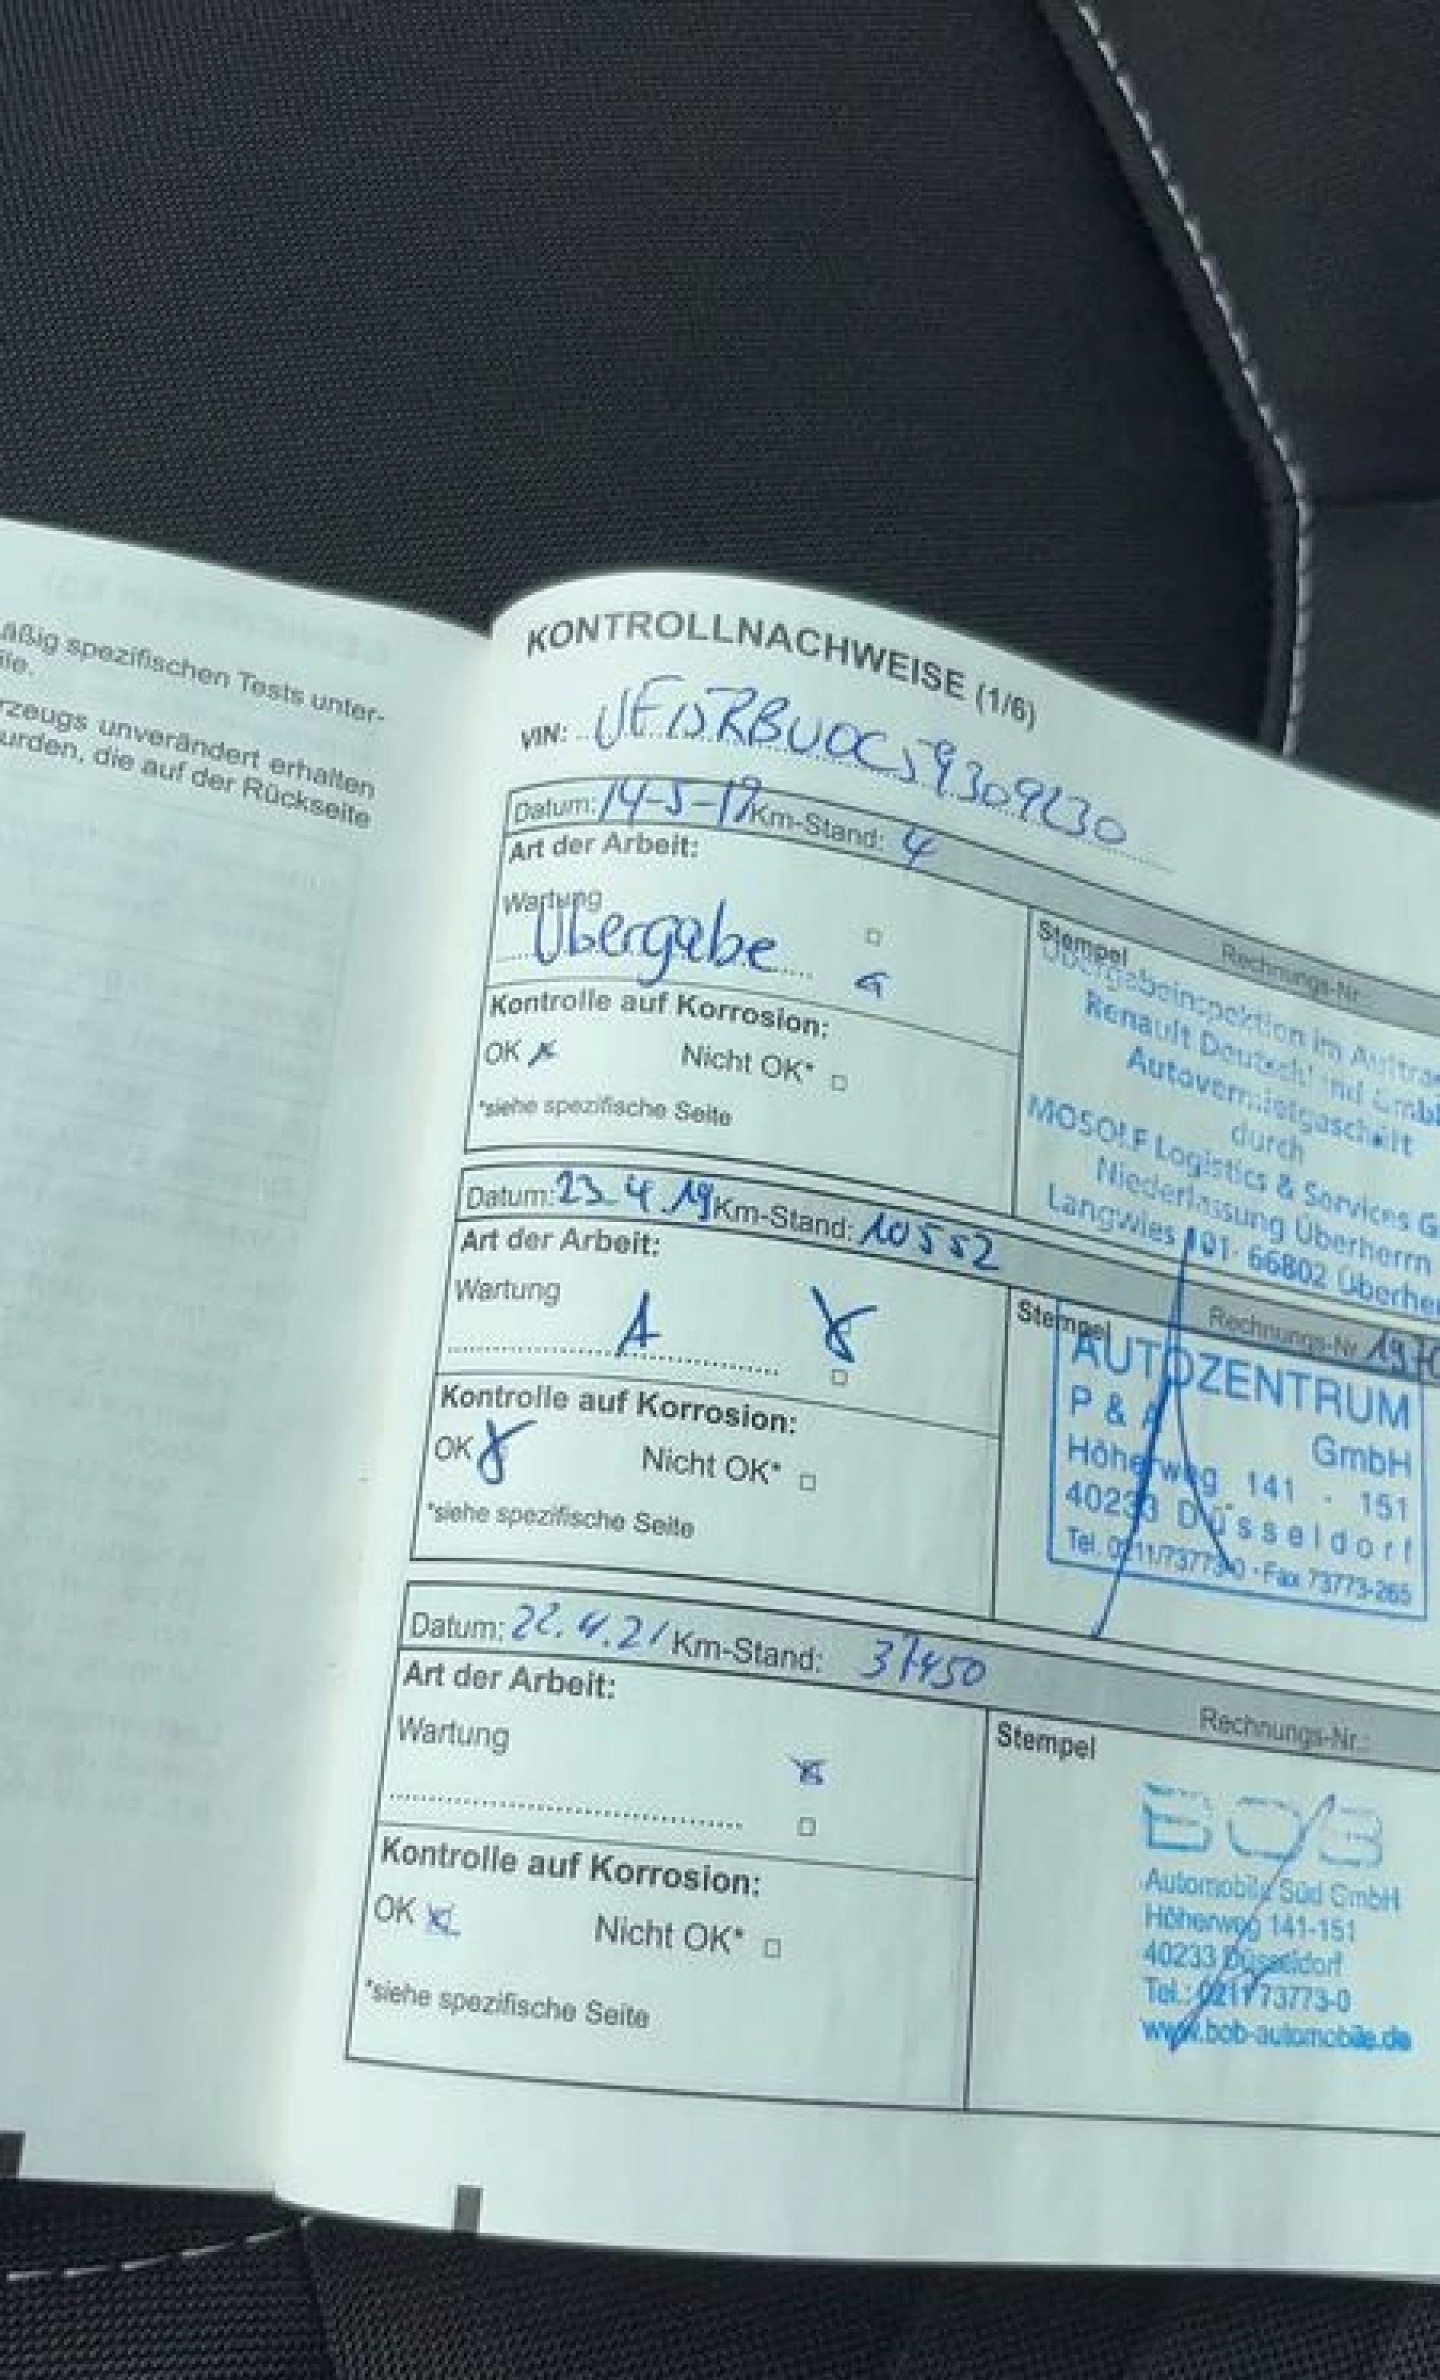 äßig spezifischen Tests unter-
ile.
rzeugs unverändert erhalten
urden, die auf der Rückseite
KONTROLLNACHWEISE (1/6)
VIN:
Datum: 14-5-17 Km-Stand: 4
Art der Arbeit:
Wartung
Übergabe
Kontrolle auf Korrosion:
OK Nicht OK*
*siehe spezifische Seite
Stempel Rechnungs-Nr.:
Übergabeinspektion im Auftra
Renault Deutschland GmbH
Autovermietgeschäft
durch
MOSOLF Logistics & Services G
Niederlassung Überherrn
Langwies 101 · 66802 Überher
Datum: 23.4.19 Km-Stand: 10552
Art der Arbeit:
Wartung
A
Kontrolle auf Korrosion:
OK Nicht OK*
*siehe spezifische Seite
Stempel Rechnungs-Nr.
AUTOZENTRUM
P & A GmbH
Höherweg 141 - 151
40233 Düsseldorf
Tel. 0211/73773-0 · Fax 73773-265
Datum: 22.4.21 Km-Stand: 37450
Art der Arbeit:
Wartung
Kontrolle auf Korrosion:
OK Nicht OK*
*siehe spezifische Seite
Stempel Rechnungs-Nr.:
BOB
Automobile Süd GmbH
Höherweg 141-151
40233 Düsseldorf
Tel.: 0211 73773-0
www.bob-automobile.de